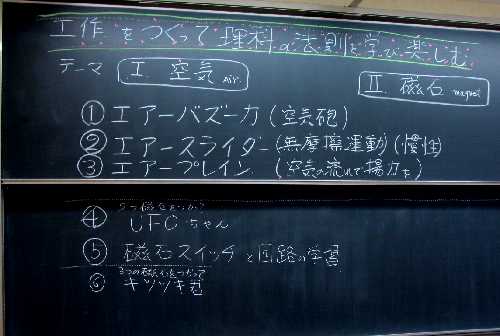 工作をつくって理科の法則を学び楽しむ
テーマ Ⅰ. 空気 air
Ⅱ. 磁石 magnet
① エアーバズーカ (空気砲)
② エアースライダー (無摩擦運動) (慣性)
③ エアープレイン (空気の流れで揚力を)
④ UFOちゃん
⑤ 磁石スイッチと回路の学習
⑥ キツツキ君